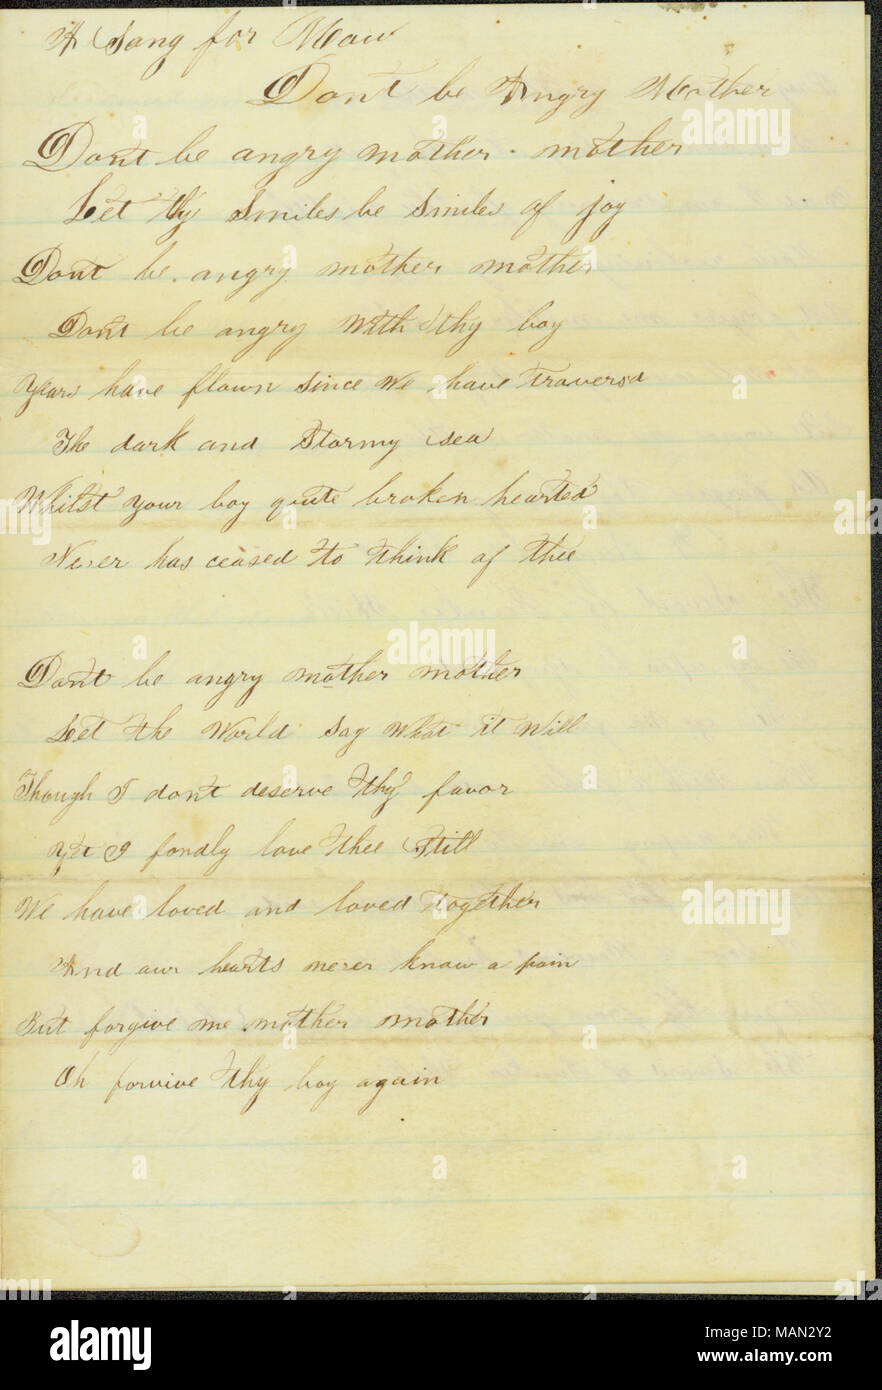 A Song for Maw
Dont be Angry Mother
Dont be angry mother. mother
Let thy Smiles be Smiles of joy
Dont be angry mother mother
Dont be angry With thy boy
Years have flown Since We have Traversd
The dark and Stormy Sea
Whilst your boy quite broken hearted
Never has ceased to think of thee
Dont be angry mother mother
Let the World Say What it Will
Though I dont deserve thy favor
Yet I fondly love thee Still
We have loved and loved Together
And our hearts never know a pain
But forgive me mother mother
Oh forvive thy boy again
alamy
alamy
alamy
alamy
alamy
alamy
alamy
Image ID: MAN2Y2
www.alamy.com